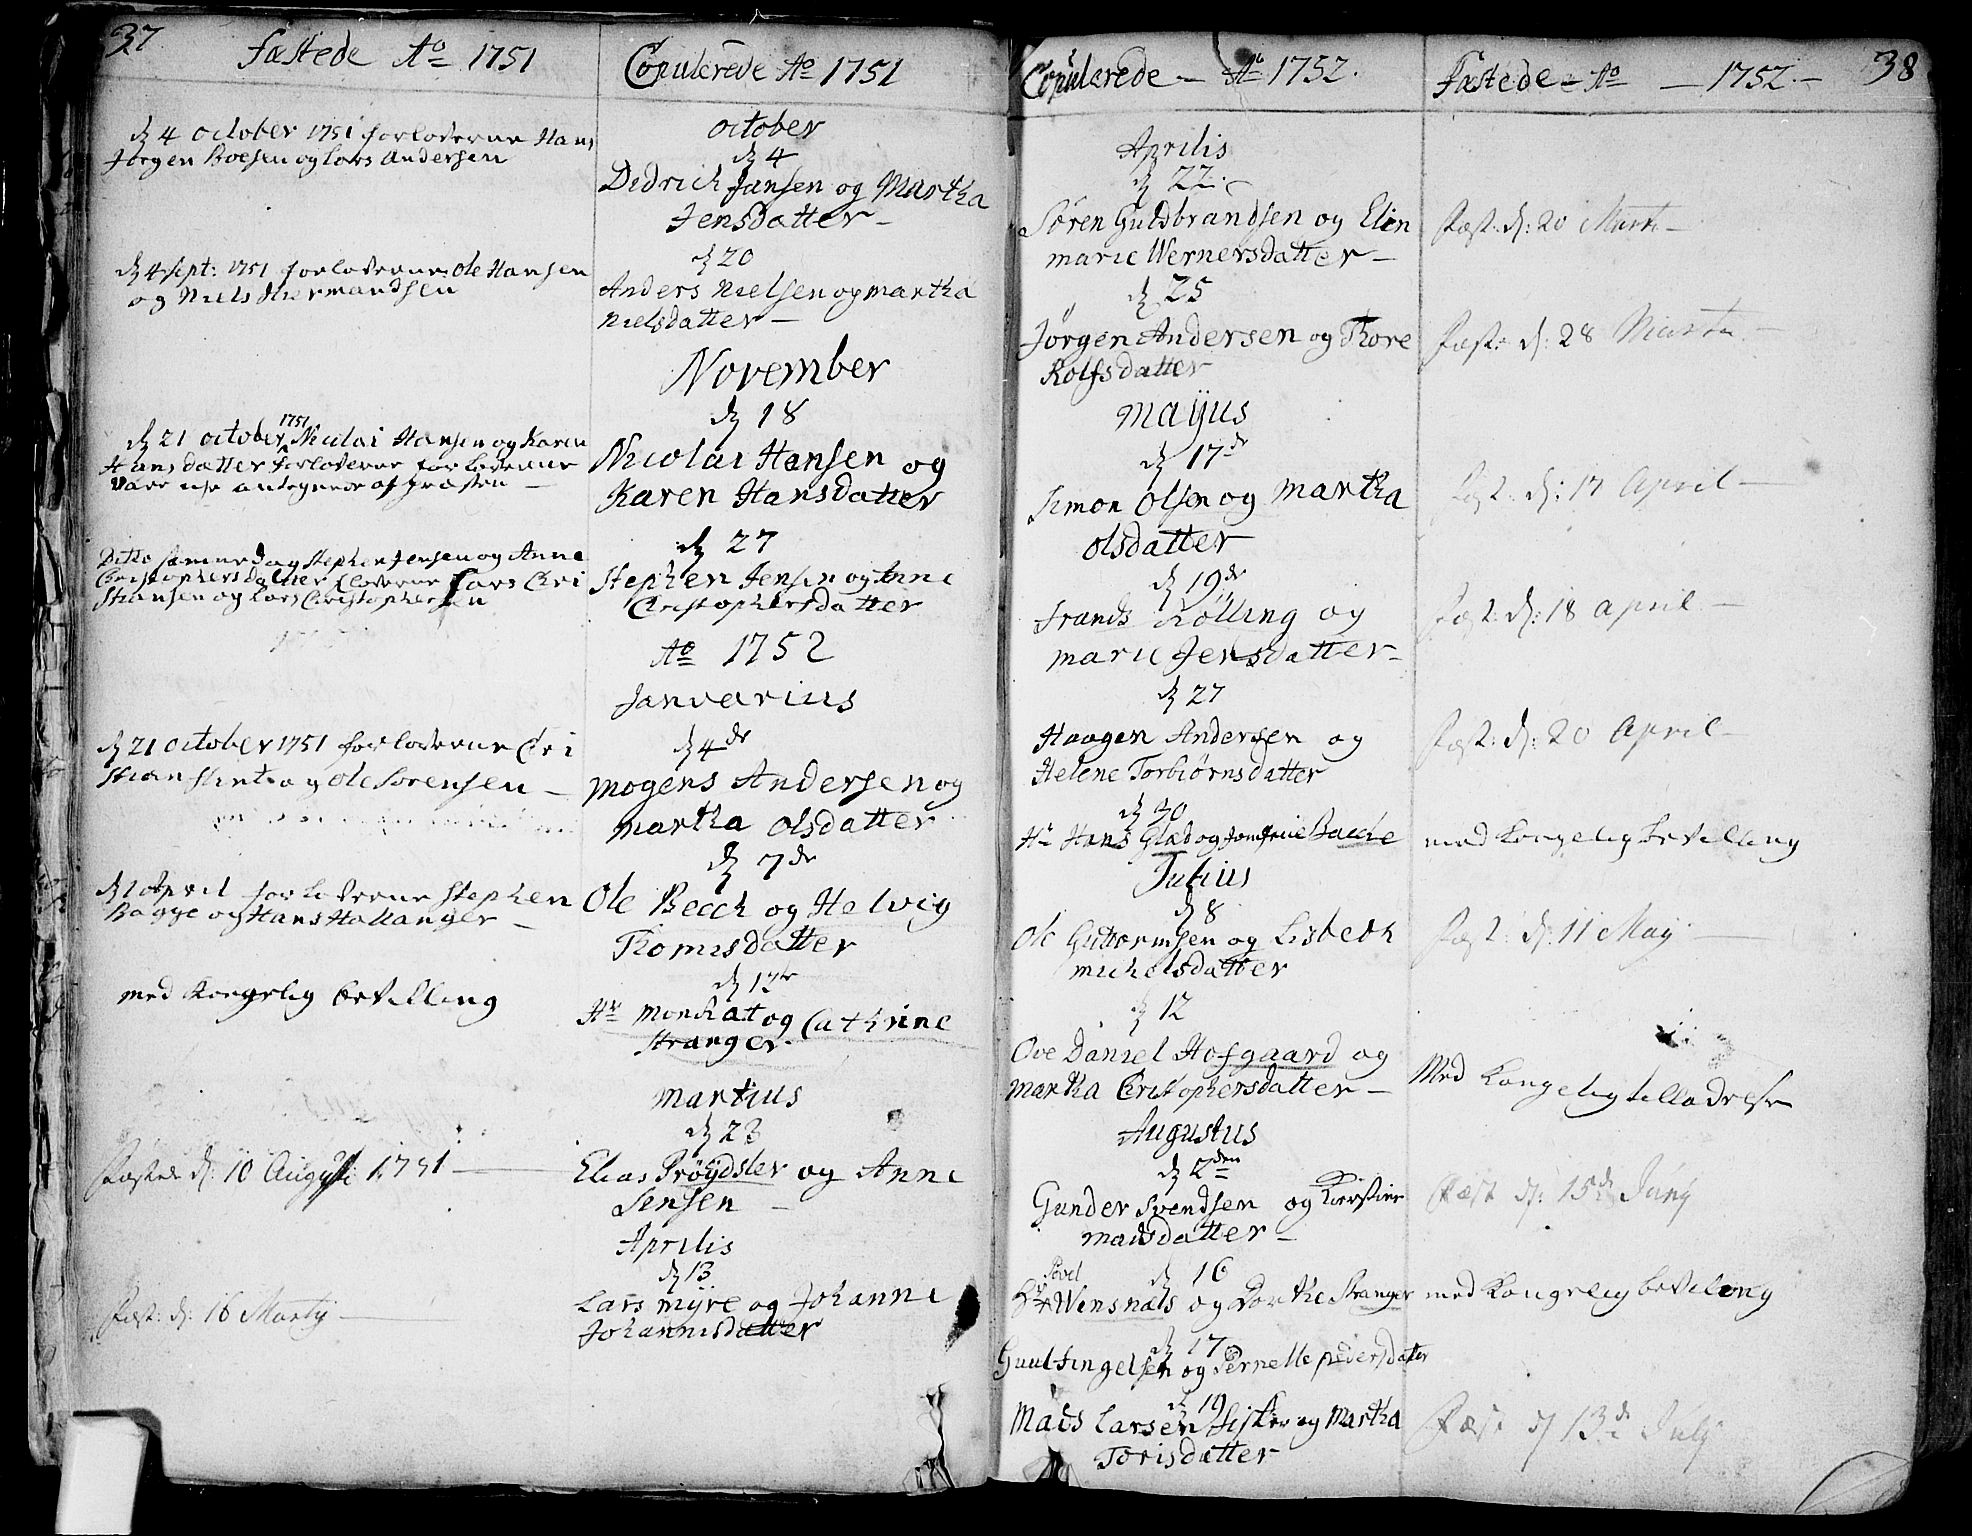 37
Fæstede Ao 1751
d 4 october 1751 forloverne Hans
Jörgen Boesen og Lars Andersen
d 4 sept: 1751 forloverne Ole Hansen
og Niels Hiermandsen
d 21 october 1751 Nicolai Hansen og Karen
Hansdatter forloverne forloverne
vare
Ditto samme dag Stephen Jensen og Anne
Christophersdatter floverne Lars Chri
stiansen og Lars Christophersen
d 21 october 1751 forloverne Chri
stian og Ole Sorensen
d April forloverne Stephen
Bagge og Hans Hallanger
med Kongelig bevilling
Fæstede d: 10 Augusti 1751
Fæst: d: 16 Martij
Copulerede Ao 1751
october
d 4
Didrich Jansen og Martha
Jensdatter
d 20
Anders Nielsen og martha
Nielsdatter
November
d 18
Nicolai Hansen og
Karen Hansdatter
d 27
Stephen Jensen og Anne
Christophersdatter
Ao 1752
Januarius
d 4de
Mogens Andersen og
martha olsdatter
d 7de
Ole Becch og Helvig
Thomisdatter
d 13de
Hr Monrat og Cathrine
Stranger
Martius
d 23
Elias Pröydsler og Anne
Jensen
Aprilis
d 13
Lars myre og Johanne
Johannisdatter
Copulerede Ao 1752.
Aprilis
d 22
Sören Guldbrandsen og Elin
marie Wernersdatter
d 25
Jörgen Andersen og Thore
Rolfsdatter
Majus
d 17de
Simon Olsen og Martha
olsdatter
d 19de
Frands Kölling og
marie Jensdatter
d 27
Haagen Andersen og
Helene Torbiörnsdatter
d 30
Hr Hans Glad og Jomfrue Bache
Julius
d 8
Ole Guttormsen og Lisbeth
michelsdatter
d 12
Ove Daniel Hofgaard og
martha Christophersdatter
Augustus
d 2den
Gunder Svendsen og Kierstine
madsdatter
d 16
Povel
Hr Wensnæs og Dorthe Stranger
d 17
Guul Engelsen og Pernelle pedersdatter
d 19
Mads Larsen Fisker og Martha
Torisdatter
Fæstede Ao 1752.
38
Fæst: d: 20 Marti
Fæst: d: 28 Marti
Fæst: d: 17 April
Fæst: d: 18 april
Fæst: d: 20 April
med Kongelig bevilling
Fæst: d: 11 Maij
Med Kongelig tilladelse
Fæst d: 15de Junij
med Kongelig bevilling
Fæst d 13de July